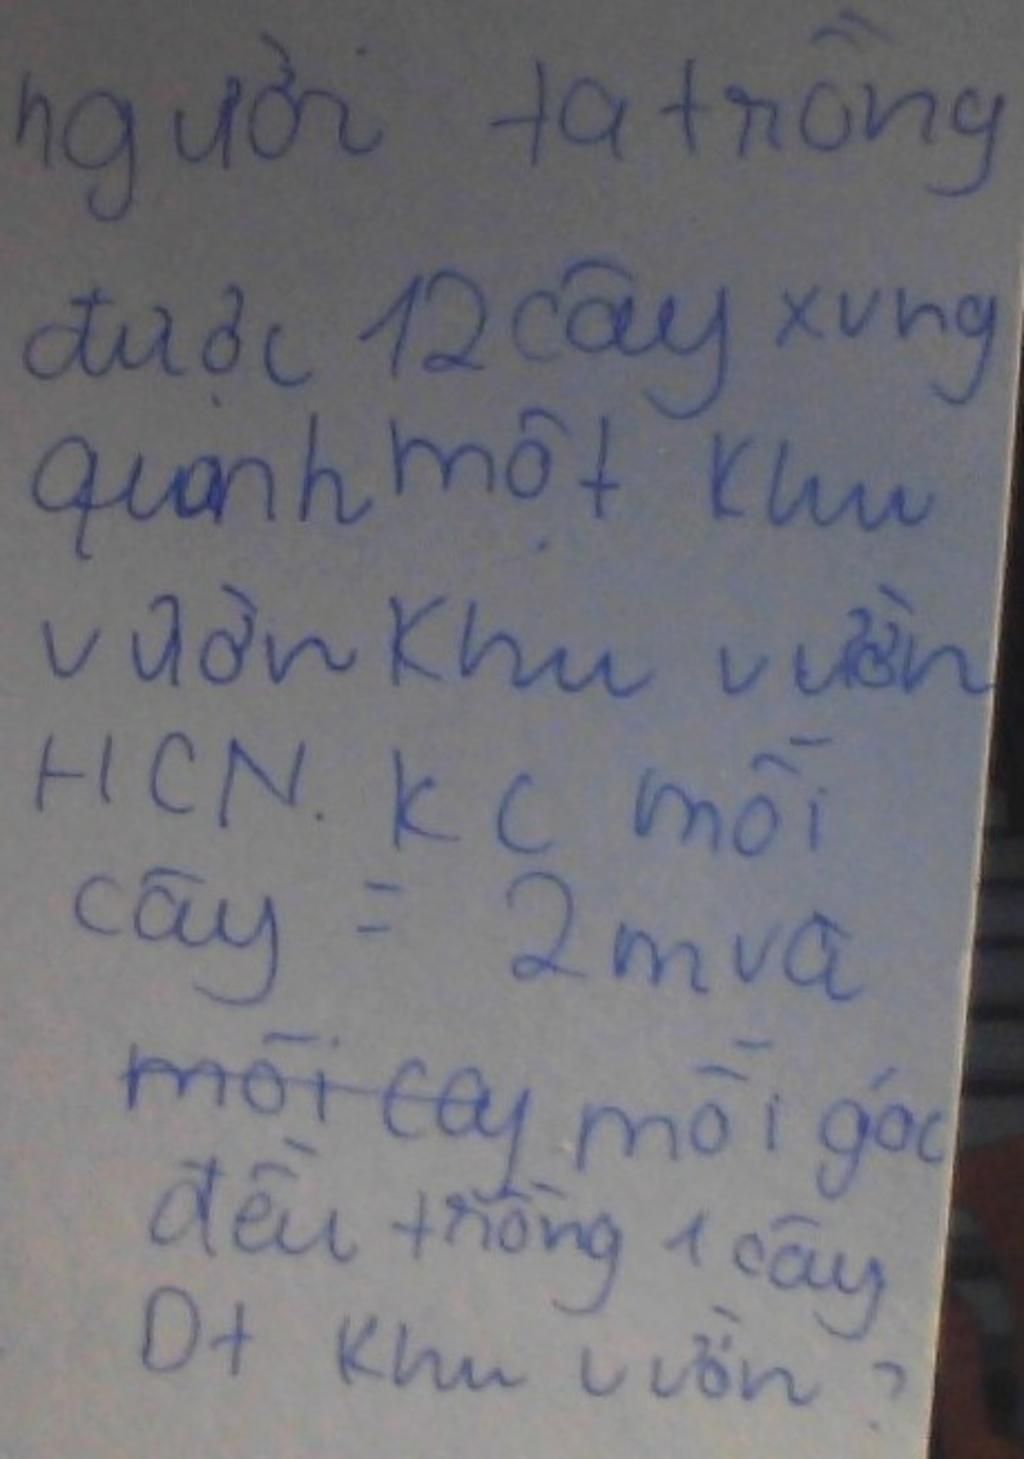 người ta trồng
được 12 cây xung
quanh một khu
vườn khu vườn
HCN. KC mỗi
cây = 2m và
mỗi cay mỗi góc
đều trồng 1 cây
Dt khu vườn ?